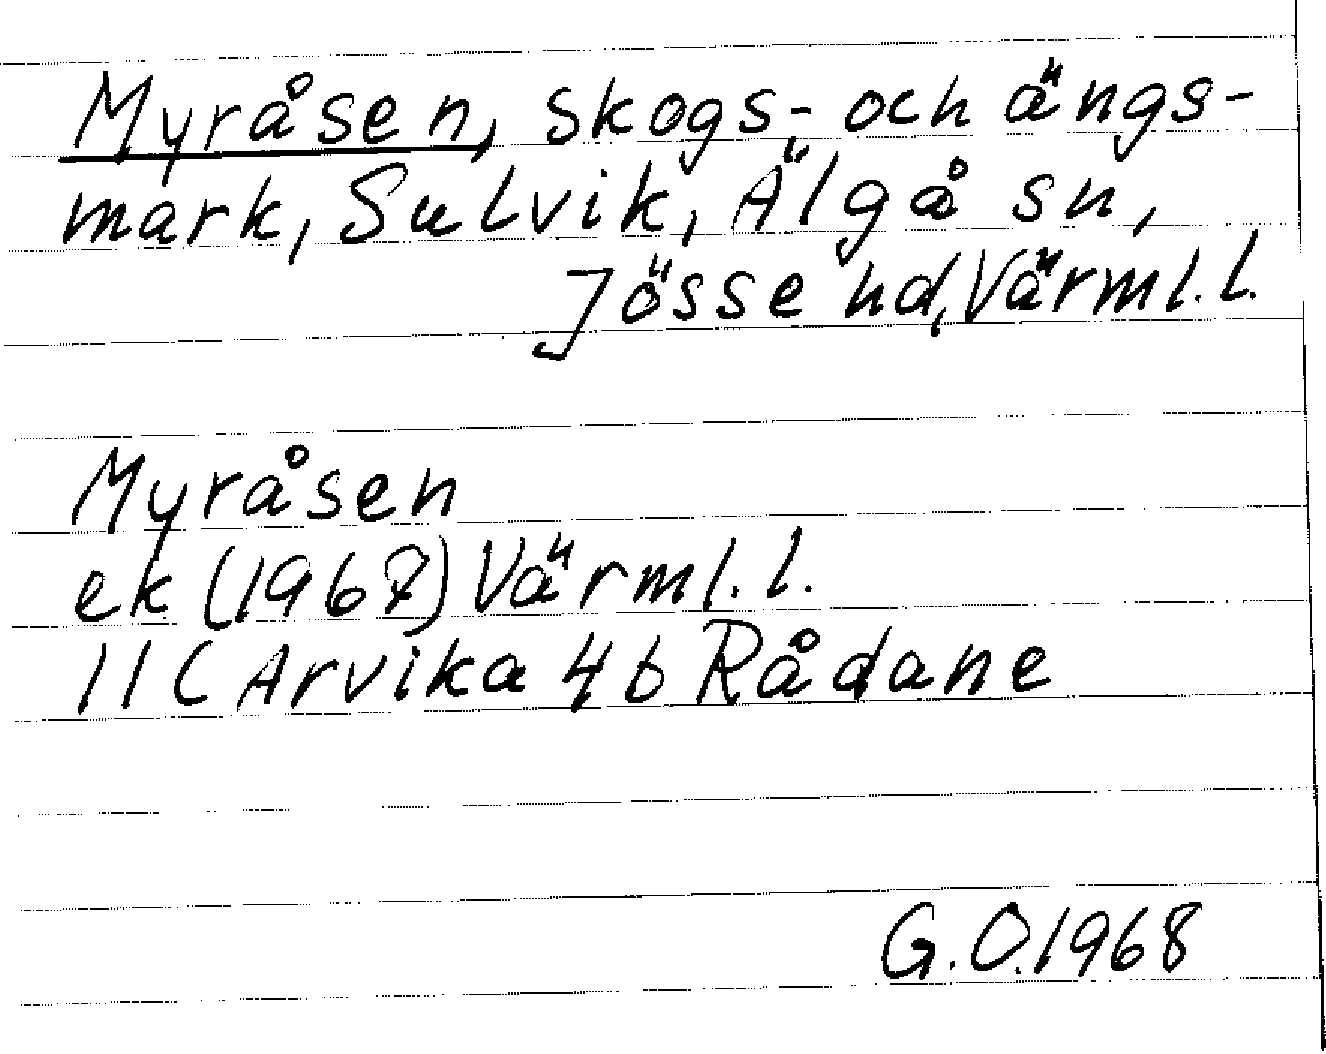 Myråsen, skogs- och ängs-
mark, Sulvik, Älgå sn,
Jösse hd, Värml. l.
Myråsen
ek (1967) Värml. l.
11 C Arvika 4b Rådane
G.O. 1968